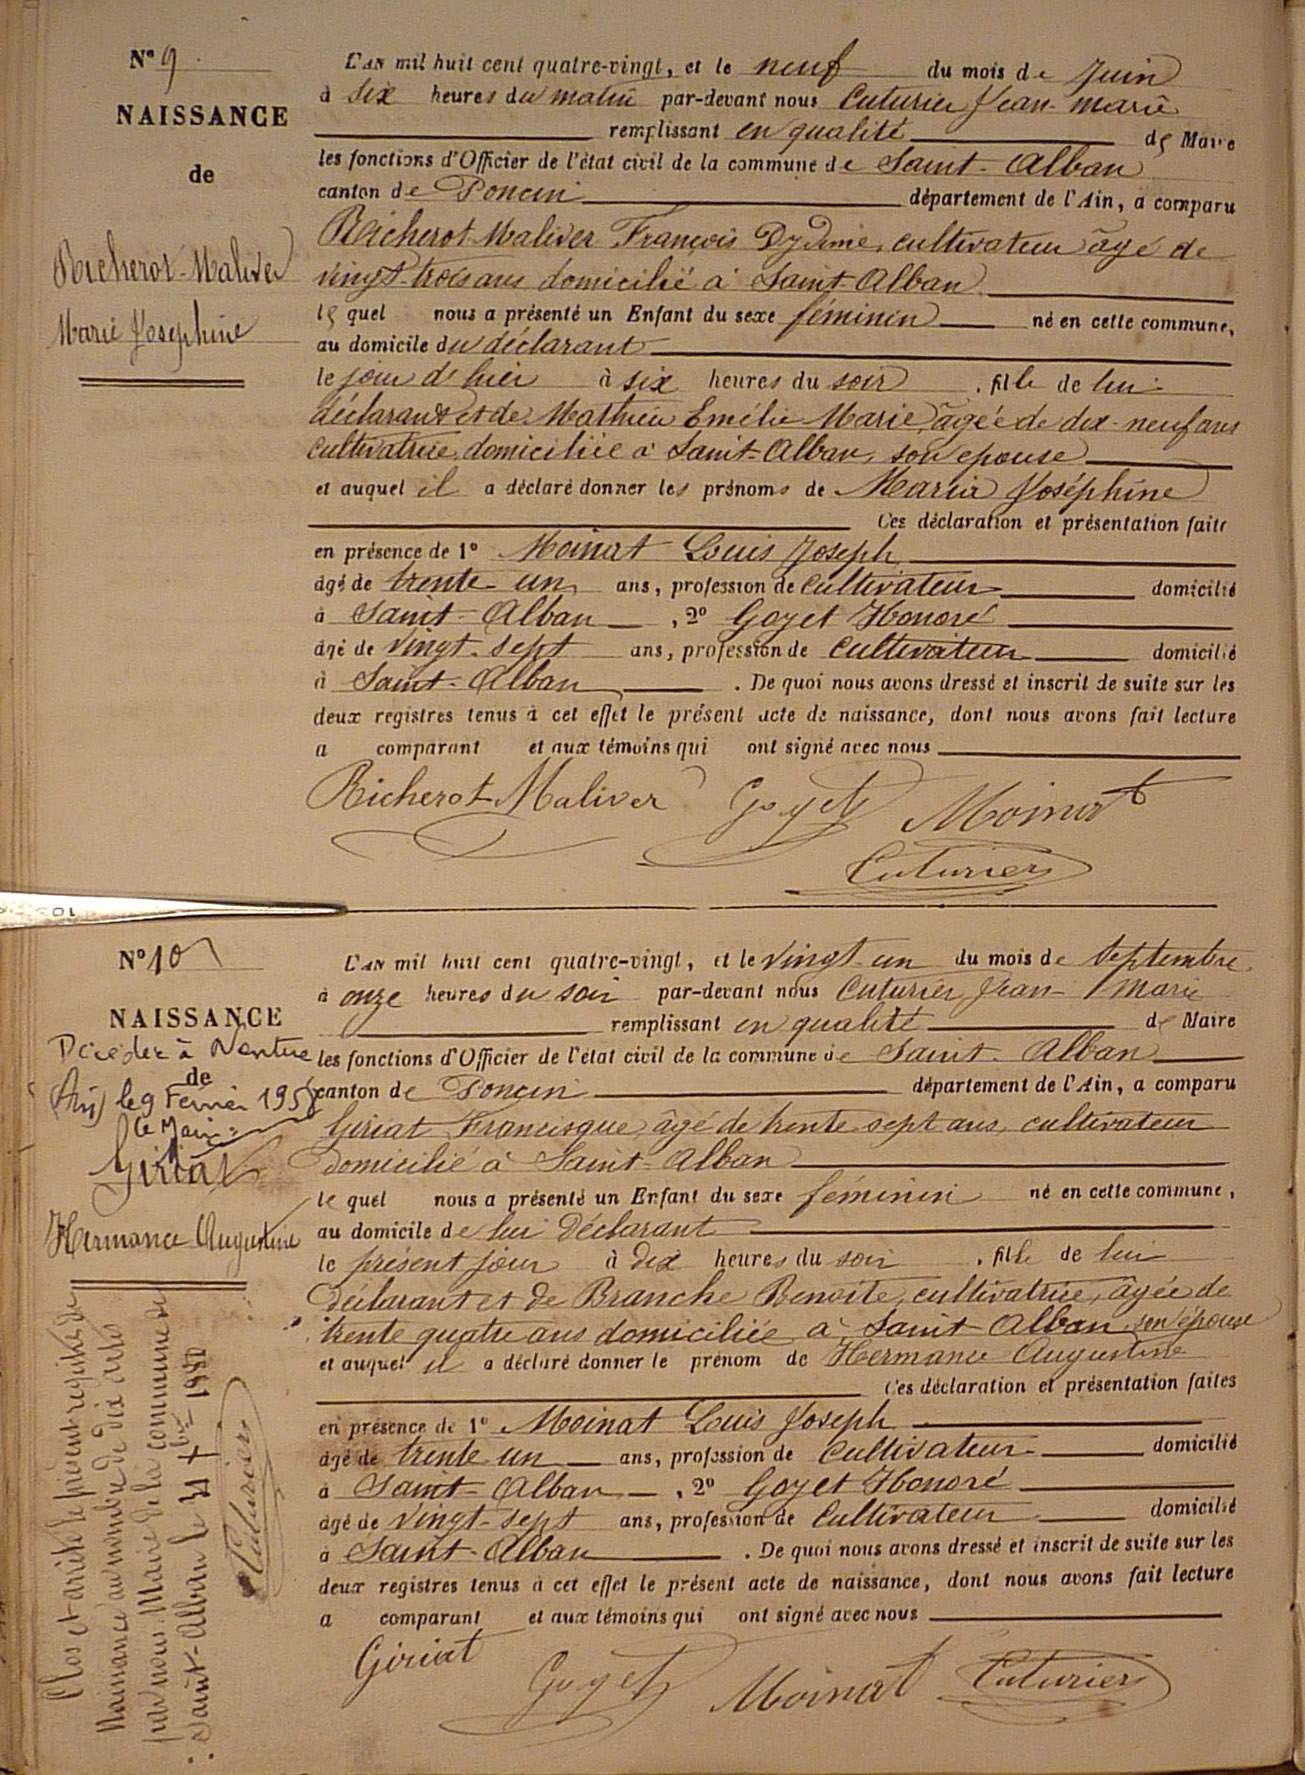 N° 9
NAISSANCE
de
Richerot-Maliver
Marie Joséphine
L'AN mil huit cent quatre-vingt, et le neuf du mois de Juin
à six heures du matin par-devant nous Cuturier Jean-Marie
remplissant en qualité de Maire
les fonctions d'Officier de l'état civil de la commune de Saint-Alban
canton de Poncin département de l'Ain, a comparu
Richerot-Maliver François Dydime, cultivateur âgé de
vingt-trois ans domicilié à Saint-Alban
lequel nous a présenté un Enfant du sexe féminin né en cette commune,
au domicile du déclarant
le jour d'hier à six heures du soir, fille de lui
déclarant et de Mathieu Emélie Marie, âgée de dix-neuf ans
cultivatrice, domiciliée à Saint-Alban, son épouse
et auquel il a déclaré donner les prénoms de Maria Joséphine
Ces déclaration et présentation faite
en présence de 1° Moinat Louis Joseph
âgé de trente-un ans, profession de cultivateur domicilié
à Saint-Alban, 2° Goyet Honoré
âgé de vingt-sept ans, profession de cultivateur domicilié
à Saint-Alban. De quoi nous avons dressé et inscrit de suite sur les
deux registres tenus à cet effet le présent acte de naissance, dont nous avons fait lecture
a comparant et aux témoins qui ont signé avec nous
Richerot-Maliver Goyet Moinat
Cuturier
N° 10
NAISSANCE
de
Giriat
Hermance Augustine
Décédée à Nantua
(Ain) le 9 Février 195
Le Maire :
L'AN mil huit cent quatre-vingt, et le vingt-un du mois de Septembre
à onze heures du soir par-devant nous Cuturier Jean-Marie
remplissant en qualité de Maire
les fonctions d'Officier de l'état civil de la commune de Saint-Alban
canton de Poncin département de l'Ain, a comparu
Giriat Francisque, âgé de trente sept ans, cultivateur
domicilié à Saint-Alban
lequel nous a présenté un Enfant du sexe féminin né en cette commune,
au domicile de lui déclarant
le présent jour à dix heures du soir, fille de lui
déclarant et de Branche Benoîte, cultivatrice, âgée de
trente quatre ans domiciliée à Saint-Alban son épouse
et auquel il a déclaré donner le prénom de Hermance Augustine
Ces déclaration et présentation faites
en présence de 1° Moinat Louis Joseph
âgé de trente un ans, profession de cultivateur domicilié
à Saint-Alban, 2° Goyet Honoré
âgé de vingt-sept ans, profession de cultivateur domicilié
à Saint-Alban. De quoi nous avons dressé et inscrit de suite sur les
deux registres tenus à cet effet le présent acte de naissance, dont nous avons fait lecture
a comparant et aux témoins qui ont signé avec nous
Giriat Goyet Moinat Cuturier
Clos et arrêté le présent registre de
Naissance au nombre de dix actes
par nous Maire de la commune de
Saint-Alban le 31 Xbre 1880
Cuturier